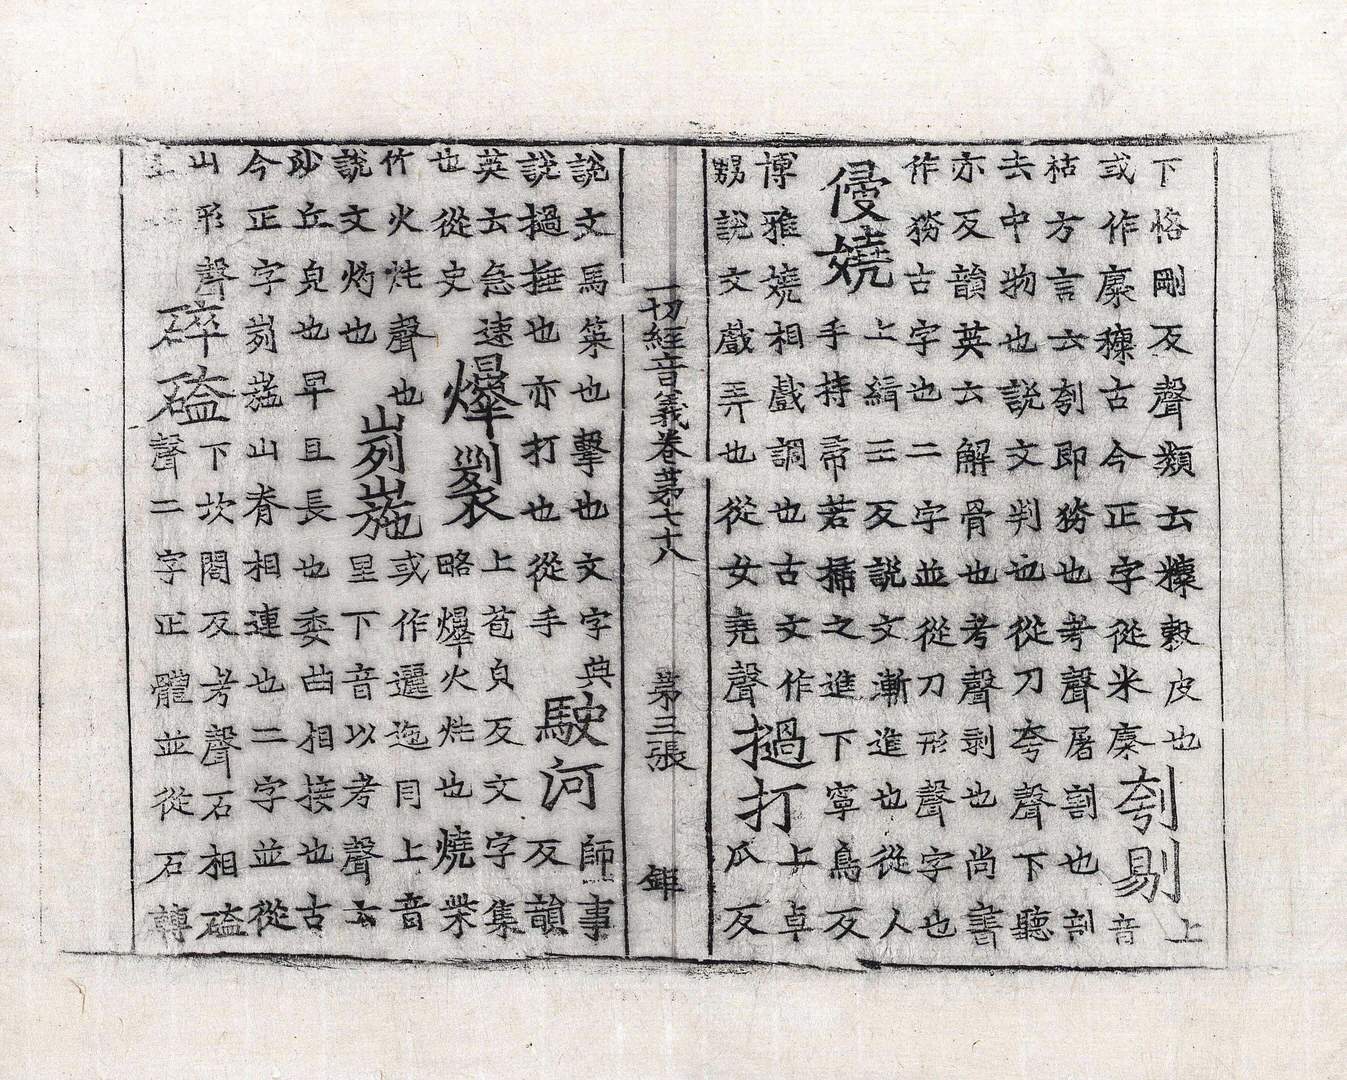 下恪剛反聲類云糠穀皮也
或作穈穅古今正字從米穈
刳剔
上
音
枯方言云刳即㓣也考聲屠割也剖
去中物也説文判也從刀夸聲下聽
亦反韻英云解骨也考聲剥也尚書
作㓣古字也二字並從刀形聲字也
侵嬈
上緝三反説文漸進也從人
手持帚若掃之進下寧鳥反
博雅嬈相戲調也古文作
嫐説文戲弄也從女堯聲
撾打
上卓
瓜反
一切經音義卷苐七十八 苐三張
説文馬策也擊也文字典
説撾捶也亦打也從手
駛河
師事
反韻
英云急速
也從史
爆裂
上苞皃反文字集
略爆火烢也燒柴
竹火烢聲也
説文灼也
峛崺
或作邐迤同上音
里下音以考聲云
沙丘皃也卑且長也委曲相接也古
今正字峛崺山脊相連也二字並從
山形聲
碎磕
下坎閤反考聲石相磕
聲二字正體並從石轉